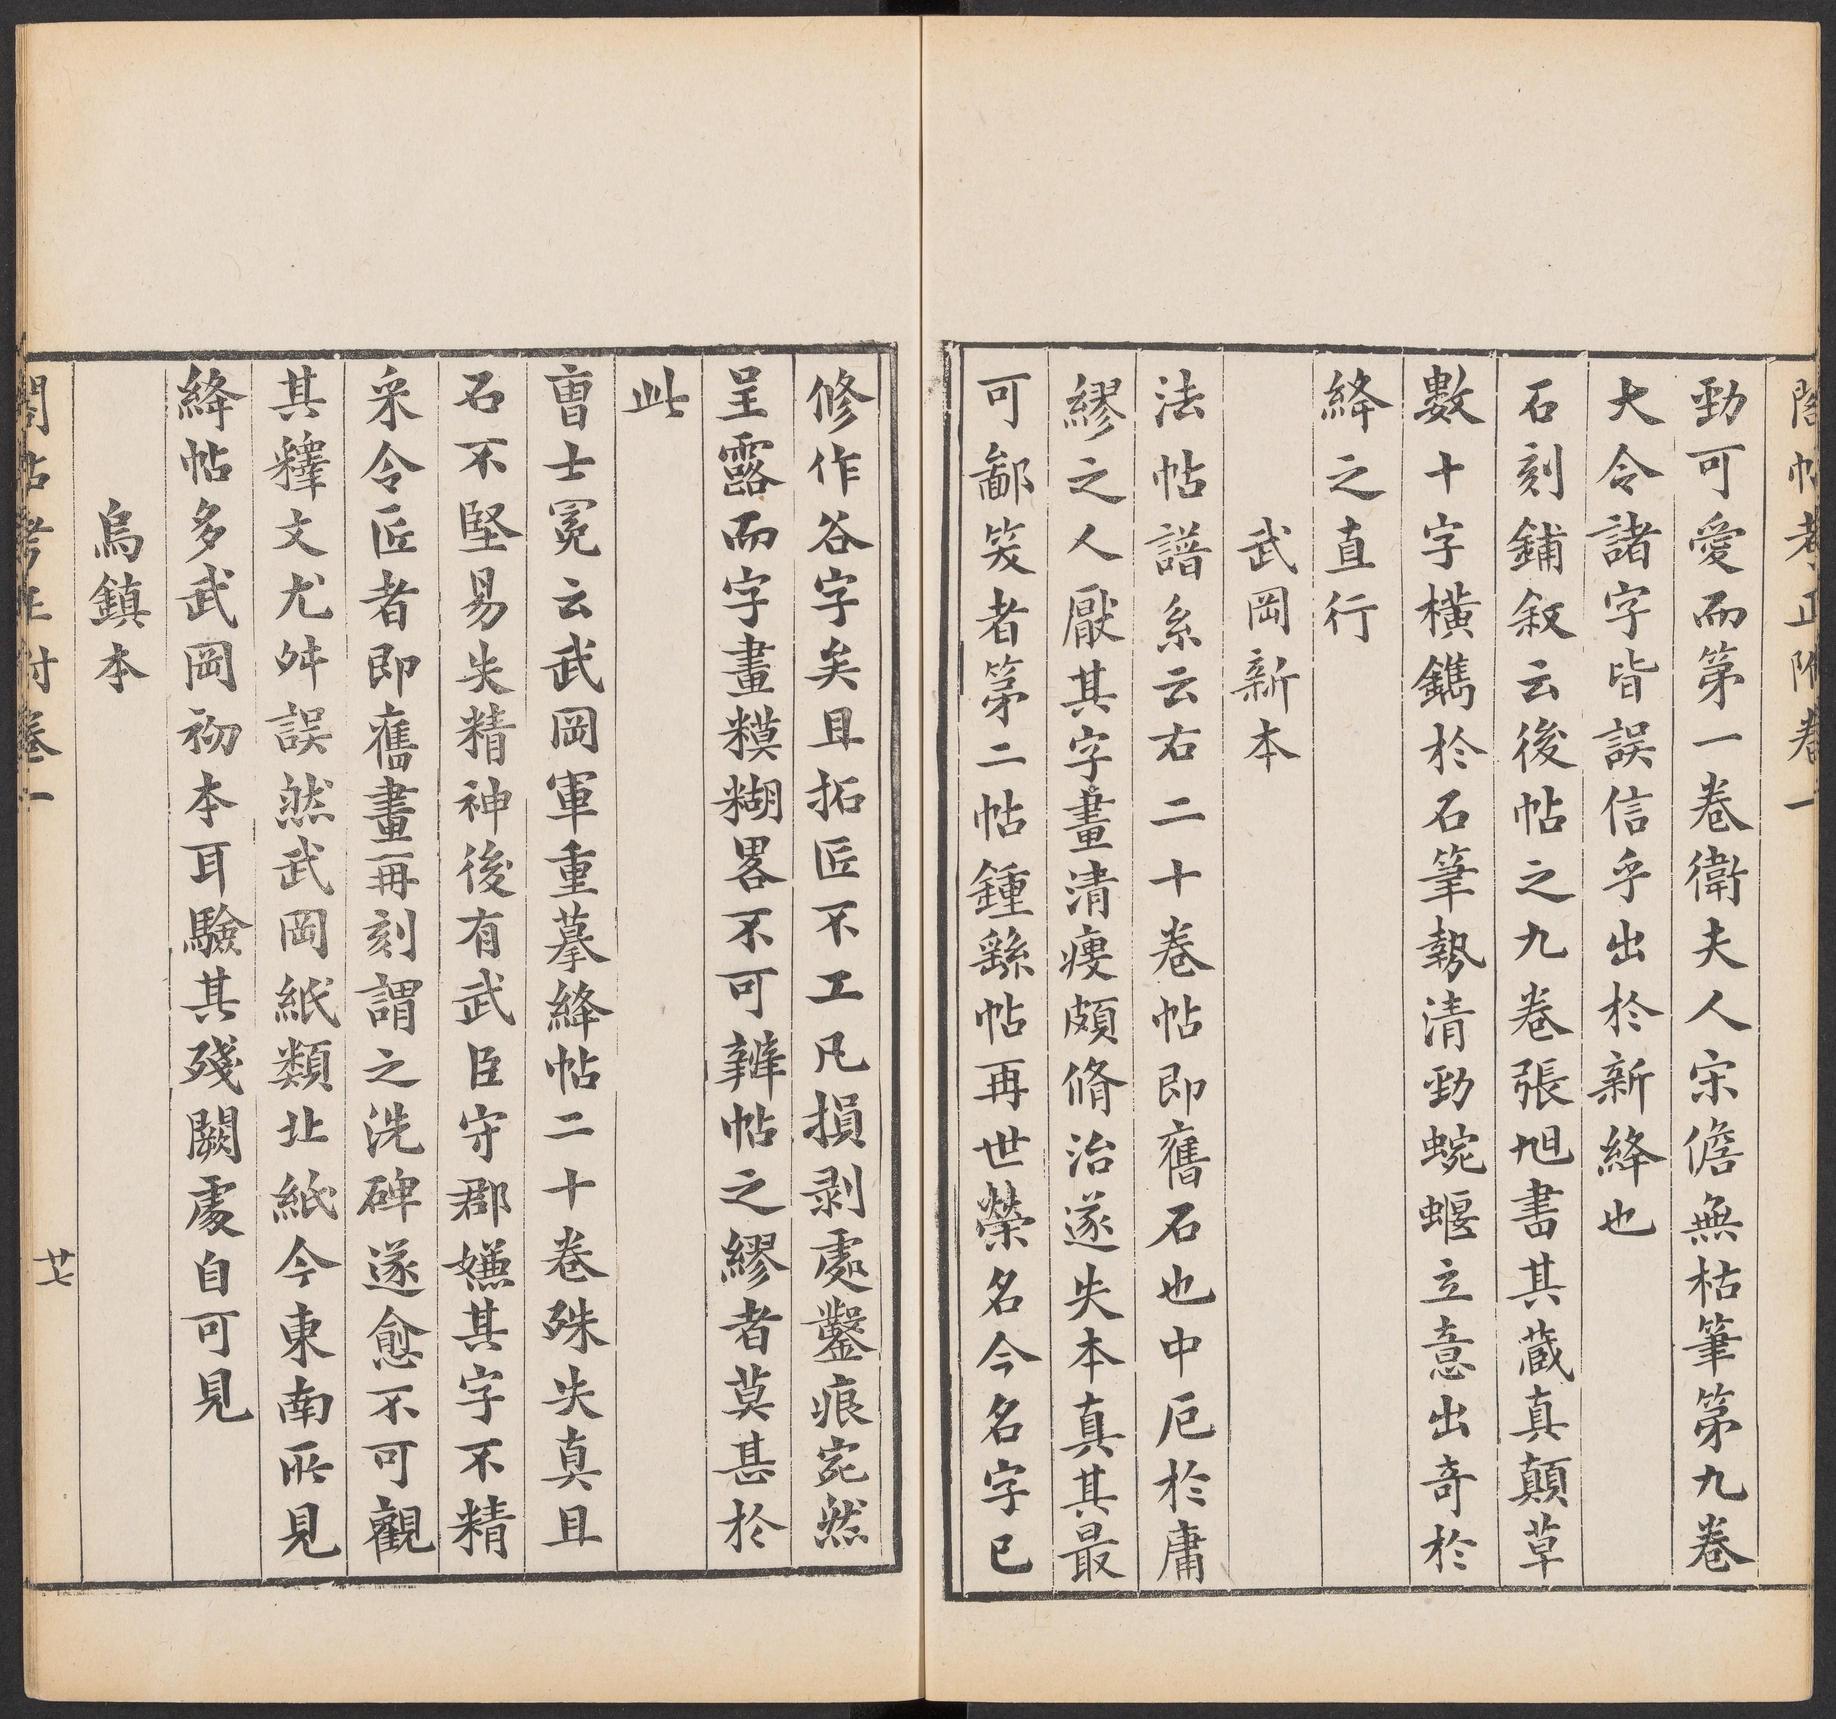 閣帖考正附卷一
勁可愛而第一卷衛夫人宋儋無枯筆第九卷
大令諸字皆誤信乎出於新絳也
石刻鋪敘云後帖之九卷張旭書其蔵真顛草
數十字横鐫於石筆勢清勁蜿蝘立意出奇於
絳之直行
武岡新本
法帖譜系云右二十卷帖即舊石也中厄於庸
繆之人厭其字畫清瘦頗脩治遂失本真其最
可鄙笑者第二帖鍾繇帖再世榮名今名字已
修作谷字矣且拓匠不工凡損剥處鑿痕宛然
呈露而字畫糢糊畧不可辨帖之繆者莫甚於
此
曺士冕云武岡軍重摹絳帖二十卷殊失真且
石不堅易失精神後有武臣守郡嫌其字不精
采令匠者即舊畫再刻謂之洗碑遂愈不可觀
其釋文尤舛誤然武岡紙類北紙今東南所見
絳帖多武岡初本耳驗其殘闕處自可見
烏鎮本
閣帖考正附卷一
廿七